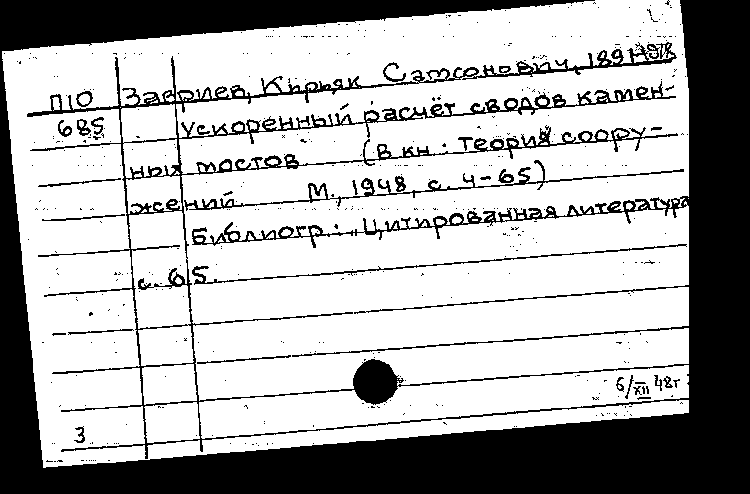 П10 Завриев, Кириак Самсонович, 1891-1978
685 Ускоренный расчёт сводов камен-
ных мостов (В кн.: Теория соору-
жений. М., 1948, с. 4-65)
Библиогр.: "Цитированная литература
с. 65.
6/XII 48г
3